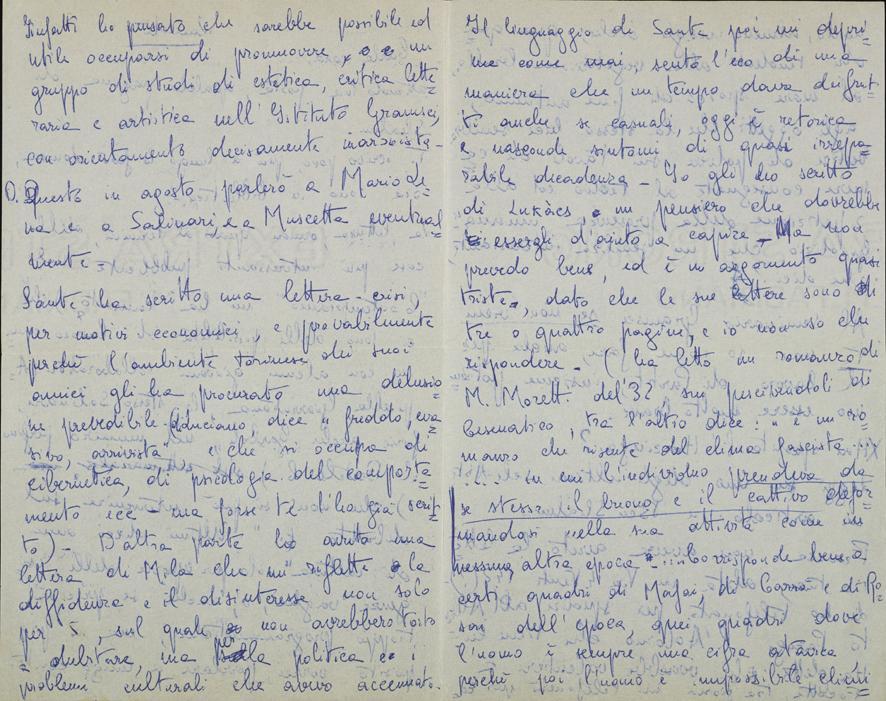 Infatti ho pensato che sarebbe possibile ed
utile occuparsi di promuovere un
gruppo di studi di estetica, critica lette=
raria e artistica nell'Istituto Gramsci,
con orientamento decisamente marxista-
Questo in agosto parlerò a Mario de
e a Salinari, e a Muscetta eventual=
mente-
Sante ha scritto una lettera-crisi,
per motivi economici, e probabilmente
perché l'ambiente torinese dei suoi
amici gli ha procurato una delusio=
ne prevedibile. dice "freddo, eva
sivo, arrivista" e che si occupa di
cibernetica, di psicologia del comporta=
mento ecc - ma forse te l'ha già scrit=
to)- D'altra parte ho avuto una
lettera di Mila che mi riflette la
diffidenza e il disinteresse non solo
per S, sul quale non avrebbero torto
a dubitare, ma per la politica e i
problemi culturali che avevo accennato.
Il linguaggio di Sante poi mi depri=
me come mai, sento l'eco di una
maniera che un tempo dava dei frut=
ti anche se casuali, oggi è retorica
e nasconde sintomi di quasi irrepa=
rabile decadenza- Io gli ho scritto
di Lukàcs un pensiero che dovrebbe
essergli d'aiuto a capire- Ma non
prevedo bene, ed è un argomento quasi
triste, dato che le sue lettere sono di
tre o quattro pagine, e io non so che
rispondere- (ha letto un romanzo di
M. Moretti del '32 sui pescivendoli di
Cesenatico, tra l'altro dice: "è un ro=
manzo che risente del clima fascista...
.... in cui l'individuo prendeva da
se stesso il buono e il cattivo defor=
mandosi nella sua attività come in
nessuna altra epoca" corrisponde bene a
certi quadri di Mafai, di Carrà e di Ro=
sai dell'epoca quei quadri dove
l'uomo è sempre una cifra atavica,
perché poi l'uomo è impossibile elimi=